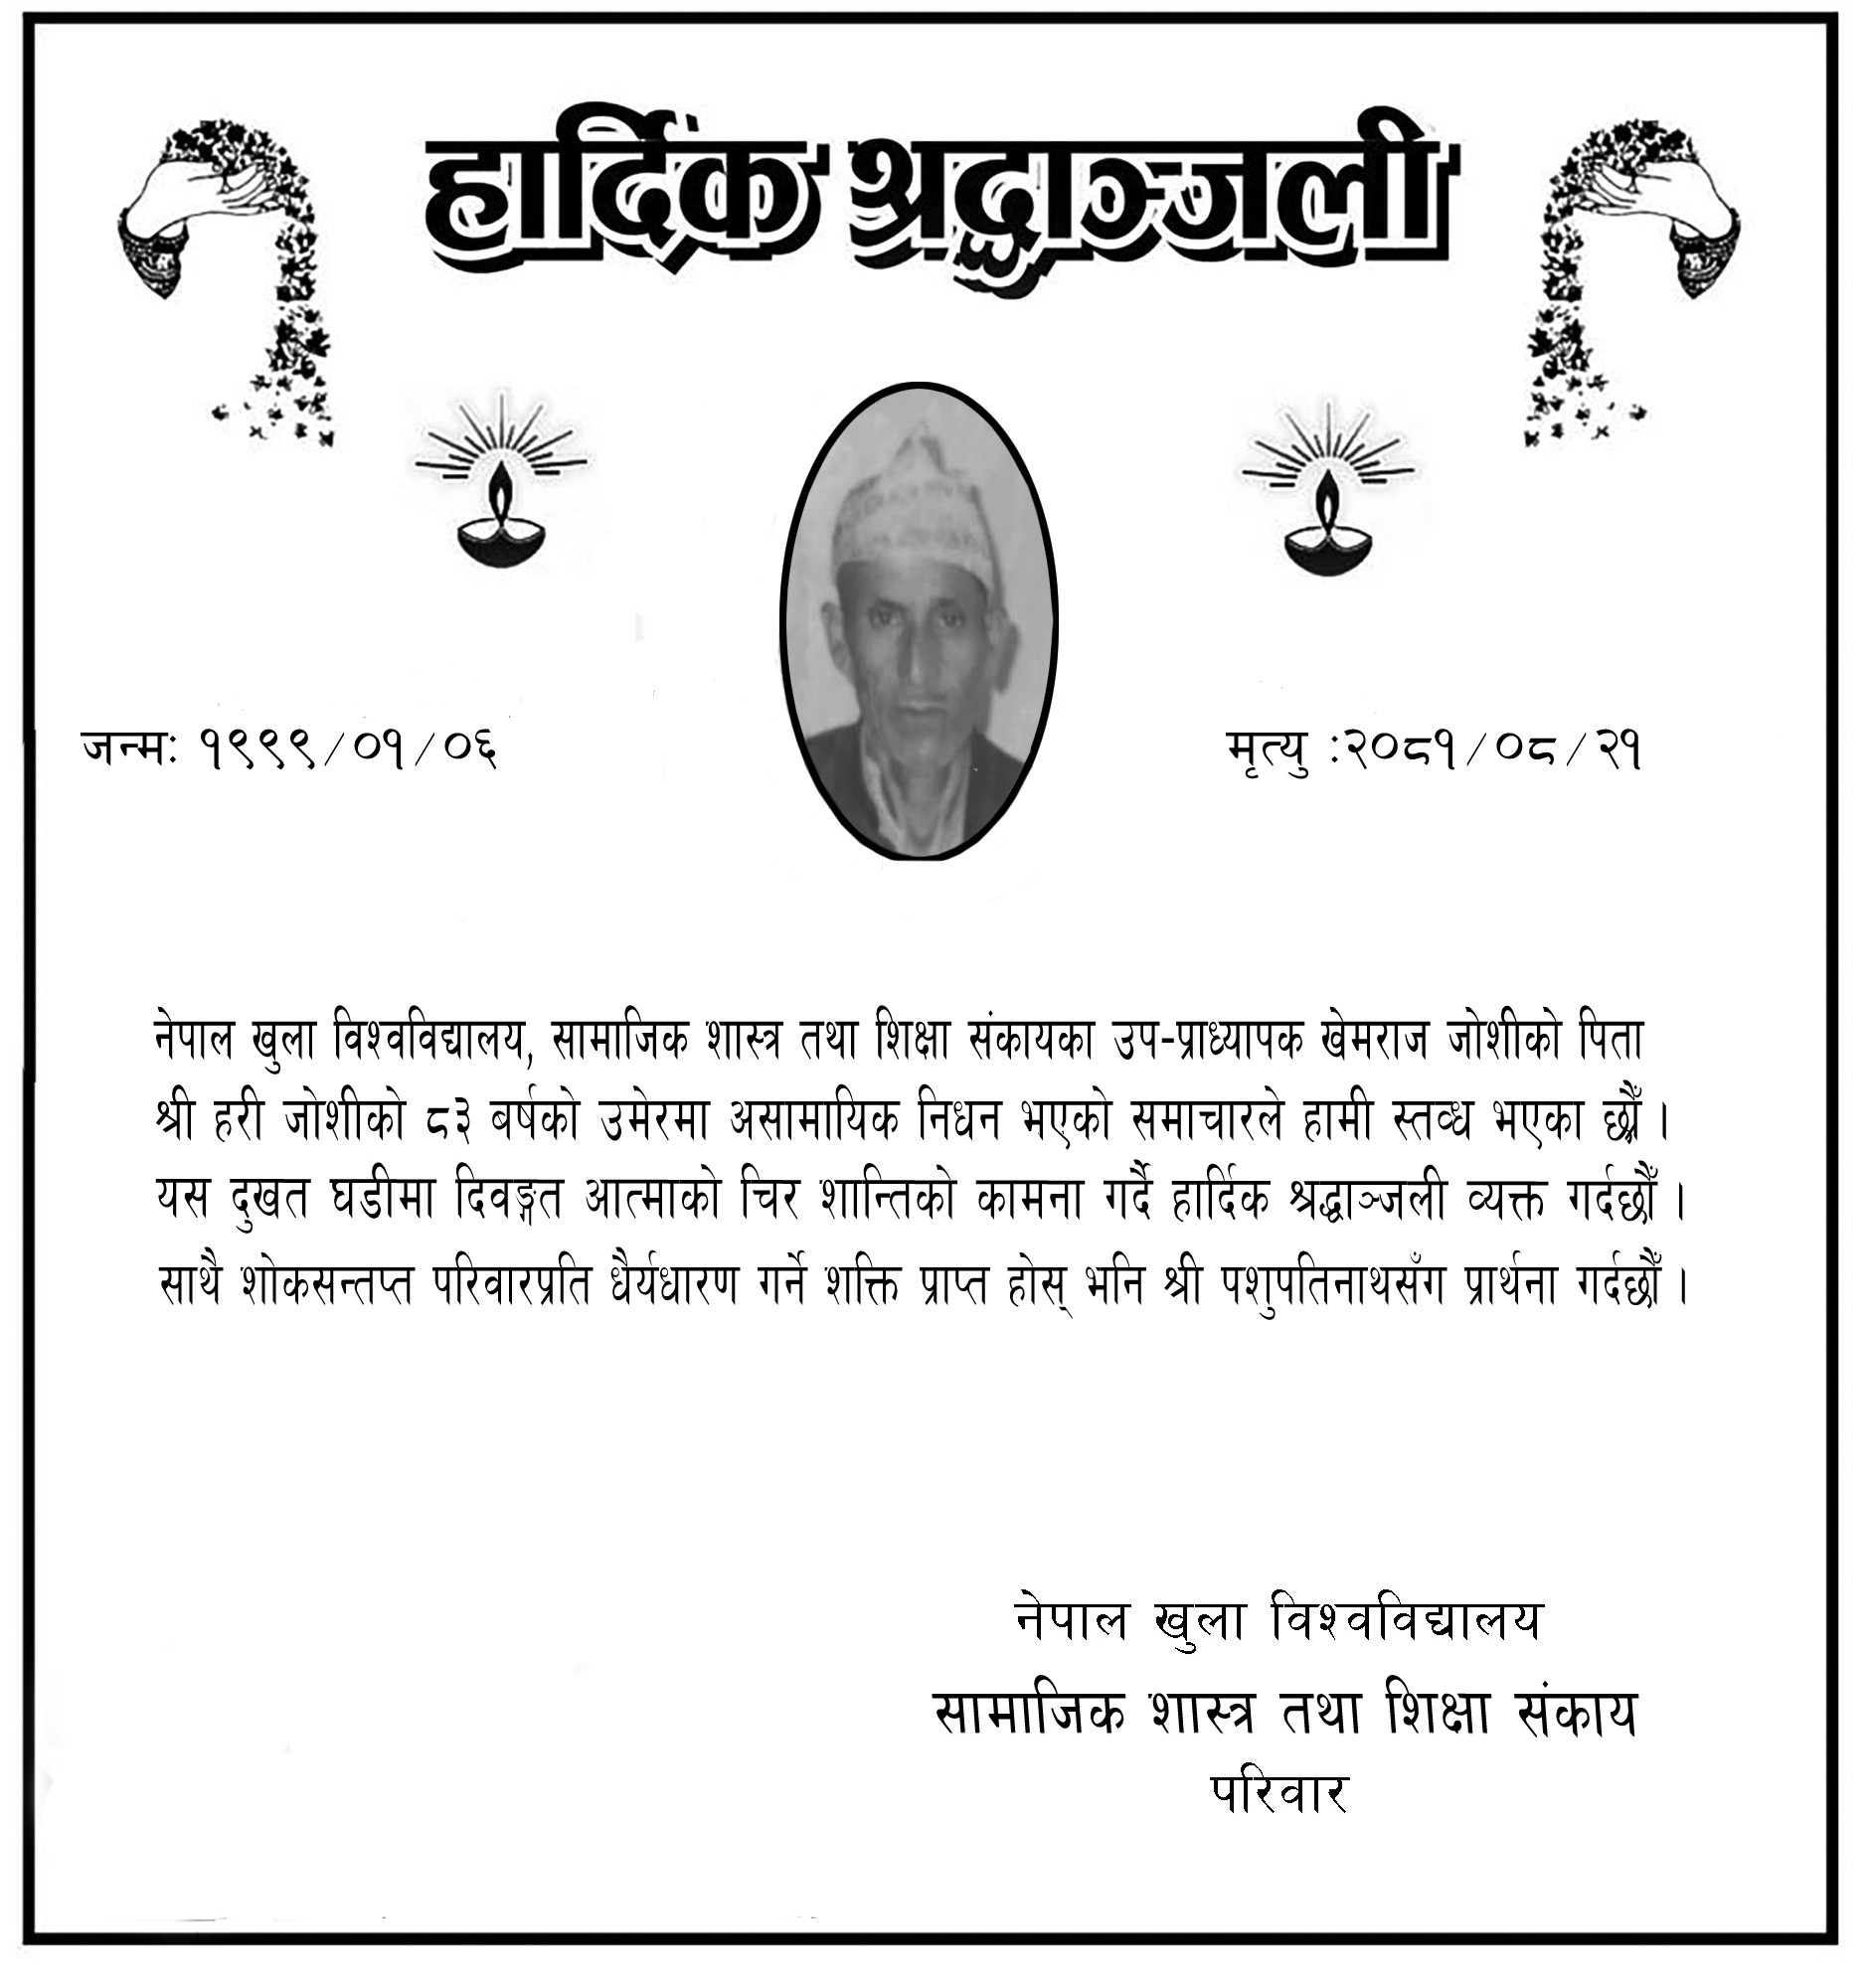 हार्दिक श्रद्धाञ्जली
जन्मः १९९९/०१/०६
मृत्यु :२०८१/०८/२१
नेपाल खुला विश्वविद्यालय, सामाजिक शास्त्र तथा शिक्षा संकायका उप-प्राध्यापक खेमराज जोशीको पिता
श्री हरी जोशीको ८३ बर्षको उमेरमा असामायिक निधन भएको समाचारले हामी स्तव्ध भएका छौँ ।
यस दुखत घडीमा दिवङ्गत आत्माको चिर शान्तिको कामना गर्दै हार्दिक श्रद्धाञ्जली व्यक्त गर्दछौँ ।
साथै शोकसन्तप्त परिवारप्रति धैर्यधारण गर्ने शक्ति प्राप्त होस् भनि श्री पशुपतिनाथसँग प्रार्थना गर्दछौँ ।
नेपाल खुला विश्वविद्यालय
सामाजिक शास्त्र तथा शिक्षा संकाय
परिवार